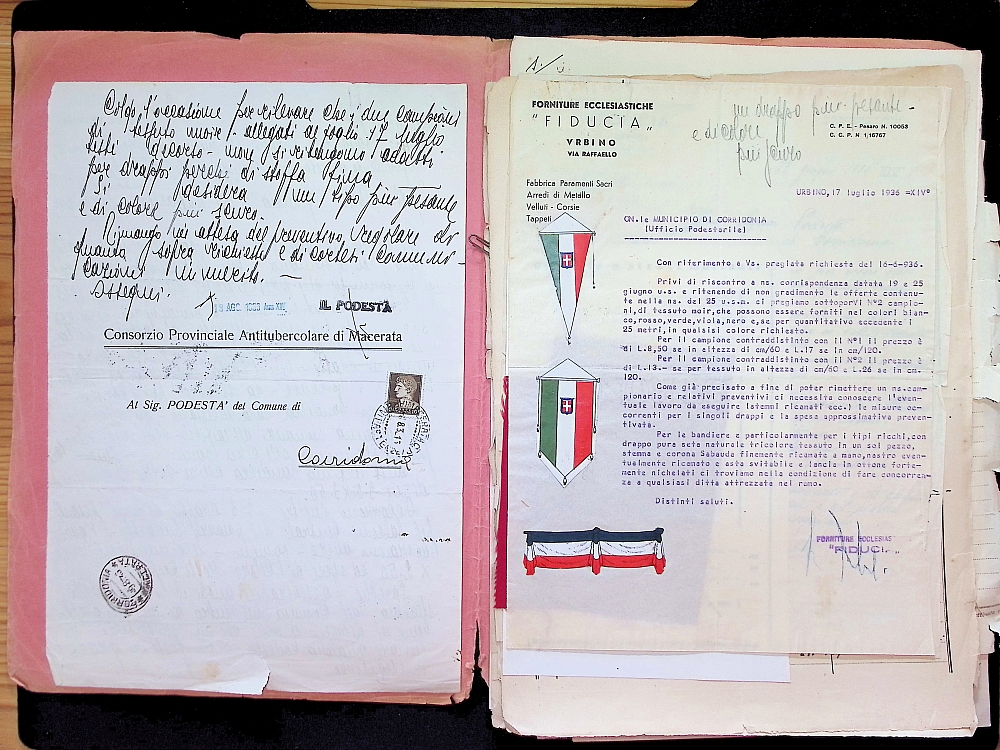 Colgo l'occasione per rilevare che i due campioni
di tessuto moire - allegati al foglio 17 luglio
decorso - non si ritengono adatti
per drappi perchè di stoffa fina
Si desidera un tipo più pesante
e di colore più scuro.
Rimango in attesa del preventivo regolare di
quanto sopra richiesto e di cortesi comuni-
cazioni in merito. —
Ossequi.
IL PODESTÀ
Consorzio Provinciale Antitubercolare di Macerata
Al Sig. PODESTA' del Comune di
Corridonia
un drappo più pesante -
e di colore
più scuro
FORNITURE ECCLESIASTICHE
"FIDUCIA„
VRBINO
VIA RAFFAELLO
C. P. E. - Pesaro N. 10053
C. C. P. N 1,16767
Fabbrica Paramenti Sacri
Arredi di Metallo
Velluti - Corsie
Tappeti
URBINO, 17 luglio 1936 =XIV°
ON.le MUNICIPIO DI CORRIDONIA
(Ufficio Podestarile)
Con riferimento a Vs. pregiata richiesta del 16-6-936.
Privi di riscontro a ns. corrispondenza datata 19 e 25
giugno u.s. e ritenendo di non gradimento le offerte contenu-
te nella ns. del 25 u.s.m. ci pregiamo sottoporVi N°2 campio-
ni, di tessuto moir, che possono essere forniti nei colori bian-
co, rosso, verde, viola, nero e, se per quantitativo eccedente i
25 metri, in qualsiasi colore richiesto.
Per il campione contraddistinto con il N°1 il prezzo è
di L.8,50 se in altezza di cm/60 e L.17 se in cm/120.
Per il campione contraddistinto con il N°2 il prezzo è
di L.13.- se per tessuto in altezza di cm/60 e L.26 se in cm.
120.
Come già precisato a fine di poter rimettere un ns. cam-
pionario e relativi preventivi ci necessita conoscere l'even-
tuale lavoro da eseguire (stemmi ricamati ecc.) le misure oc-
correnti per i singoli drappi e la spesa approssimativa preven-
tivata.
Per le bandiere e particolarmente per i tipi ricchi, con
drappo pura seta naturale tricolore tessuto in un sol pezzo,
stemma e corona Sabauda finemente ricamate a mano, nastro even-
tualmente ricamato e asta svitabile e lancia in ottone forte-
mente nichelati ci troviamo nella condizione di fare concorren-
za a qualsiasi ditta attrezzata nel ramo.
Distinti saluti.
FORNITURE ECCLESIAS
"FIDUCI